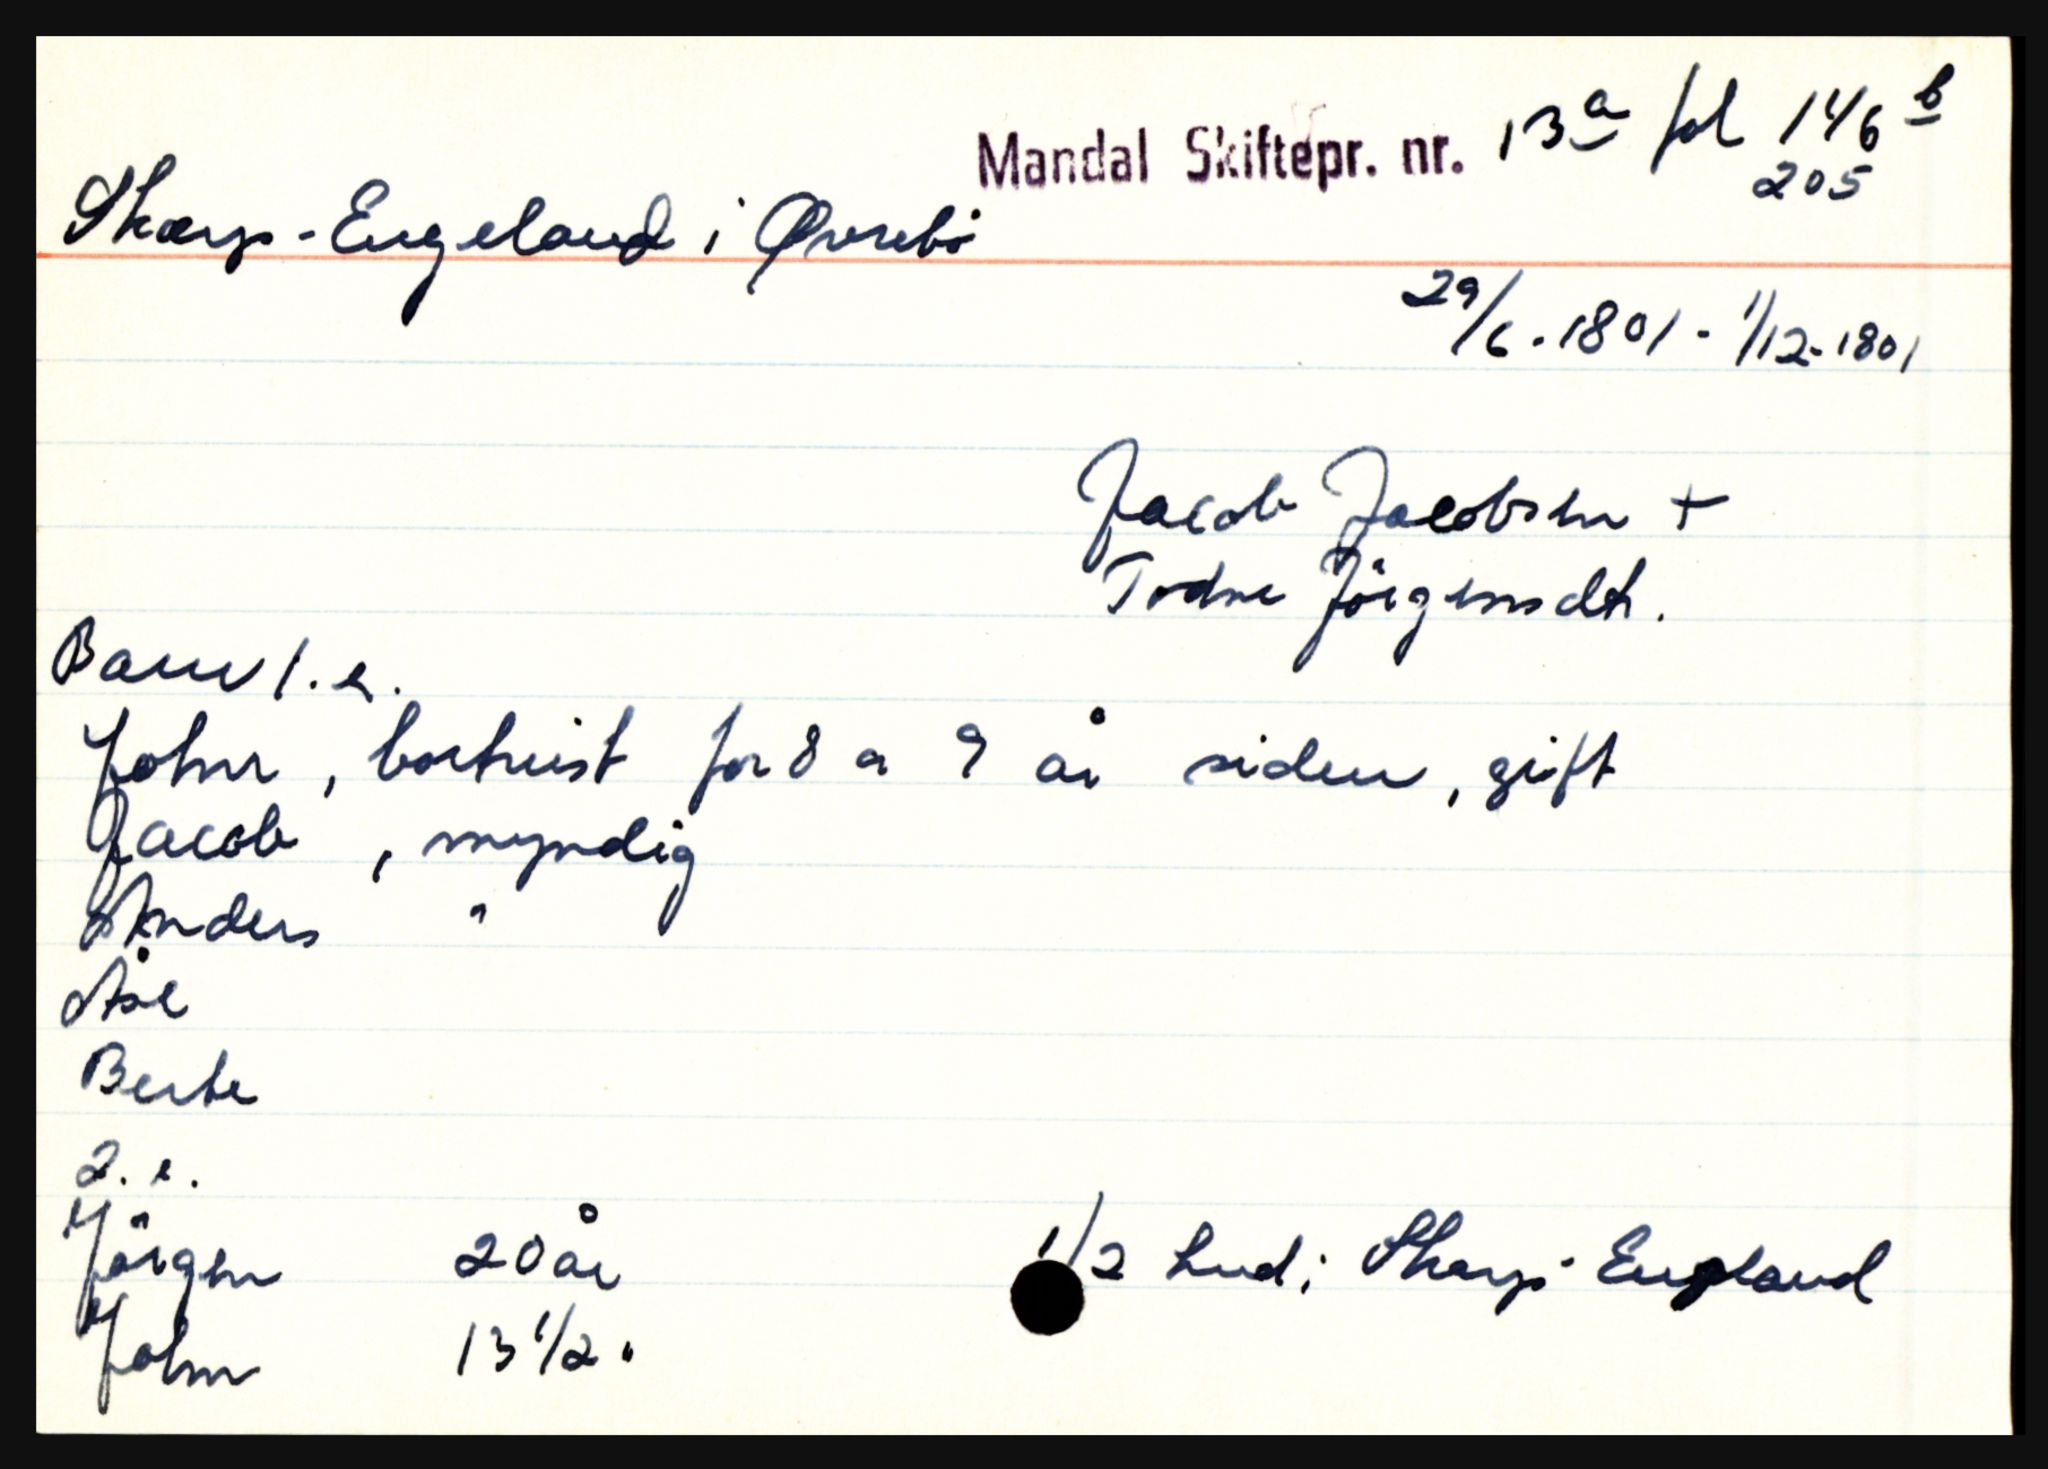 Mandal Skiftepr. nr. 13a fol 146b
205
Skarps-Engeland i Øvrebö
29/6.1801 - 1/12-1801
Jacob Jacobsen +
Todne Jörgensdtr.
Barn 1. e.
John, bortreist for 8 a 9 år siden, gift
Jacob, myndig
Anders "
Åse
Berte
2. e.
Jörgen 20 år
John 13 1/2 "
1/2 hud i Skarps-Engeland